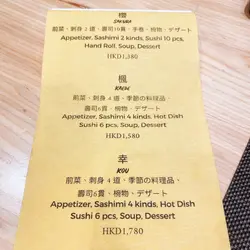 櫻
SAKURA
前菜、刺身 2 道、壽司10貫、手卷、椀物、デザート
Appetizer, Sashimi 2 kinds, Sushi 10 pcs,
Hand Roll, Soup, Dessert
HKD1,380
楓
KAEDE
前菜、刺身 4 道、季節の料理品、
壽司6貫、椀物、デザート
Appetizer, Sashimi 4 kinds, Hot Dish
Sushi 6 pcs, Soup, Dessert
HKD1,580
幸
KOU
前菜、刺身 4 道、季節の料理品、
壽司6貫、椀物、デザート
Appetizer, Sashimi 4 kinds, Hot Dish
Sushi 6 pcs, Soup, Dessert
HKD1,780